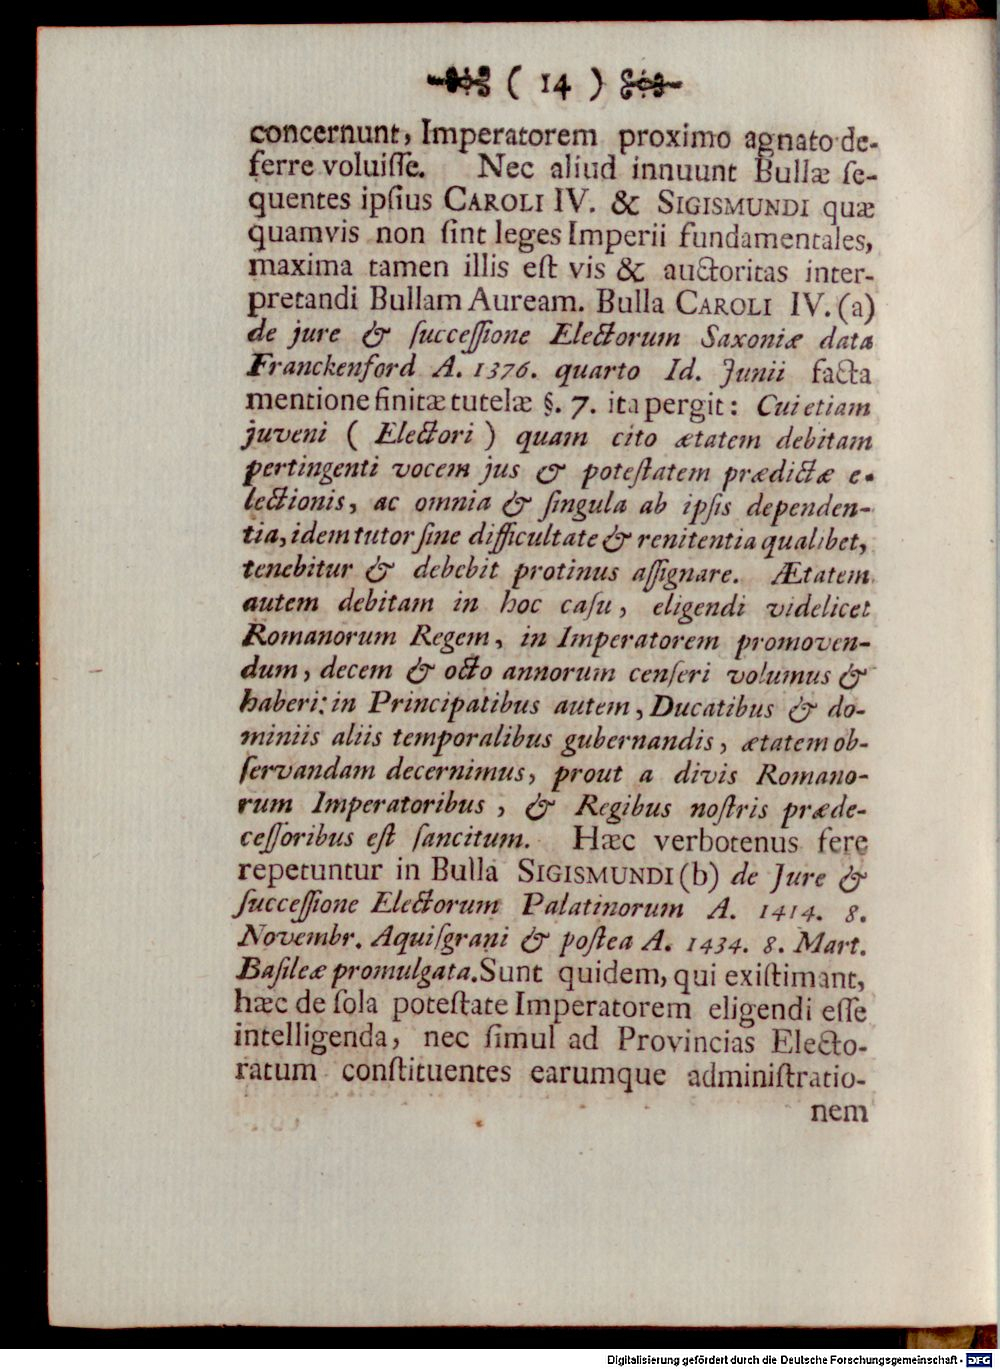 ( 14 )
concernunt, Imperatorem proximo agnato de-
ferre voluiſſe. Nec aliud innuunt Bullæ ſe-
quentes ipſius CAROLI IV. & SIGISMUNDI quæ
quamvis non ſint leges Imperii fundamentales,
maxima tamen illis eſt vis & auctoritas inter-
pretandi Bullam Auream. Bulla CAROLI IV. (a)
de jure & ſucceſſione Electorum Saxoniæ data
Franckenford A. 1376. quarto Id. Junii facta
mentione finitæ tutelæ §. 7. ita pergit: Cui etiam
juveni ( Electori ) quam cito ætatem debitam
pertingenti vocem jus & poteſtatem prædictæ e-
lectionis, ac omnia & ſingula ab ipſis dependen-
tia, idem tutor ſine difficultate & renitentia qualibet,
tenebitur & debebit protinus aſſignare. Ætatem
autem debitam in hoc caſu, eligendi videlicet
Romanorum Regem, in Imperatorem promoven-
dum, decem & octo annorum cenſeri volumus &
haberi: in Principatibus autem, Ducatibus & do-
miniis aliis temporalibus gubernandis, ætatem ob-
ſervandam decernimus, prout a divis Romano-
rum Imperatoribus, & Regibus noſtris præde-
ceſſoribus eſt ſancitum. Hæc verbotenus fere
repetuntur in Bulla SIGISMUNDI (b) de Jure &
ſucceſſione Electorum Palatinorum A. 1414. 8.
Novembr. Aquiſgrani & poſtea A. 1434. 8. Mart.
Baſileæ promulgata. Sunt quidem, qui exiſtimant,
hæc de ſola poteſtate Imperatorem eligendi eſſe
intelligenda, nec ſimul ad Provincias Electo-
ratum conſtituentes earumque adminiſtratio-
nem
Digitalisierung gefördert durch die Deutsche Forschungsgemeinschaft - DFG